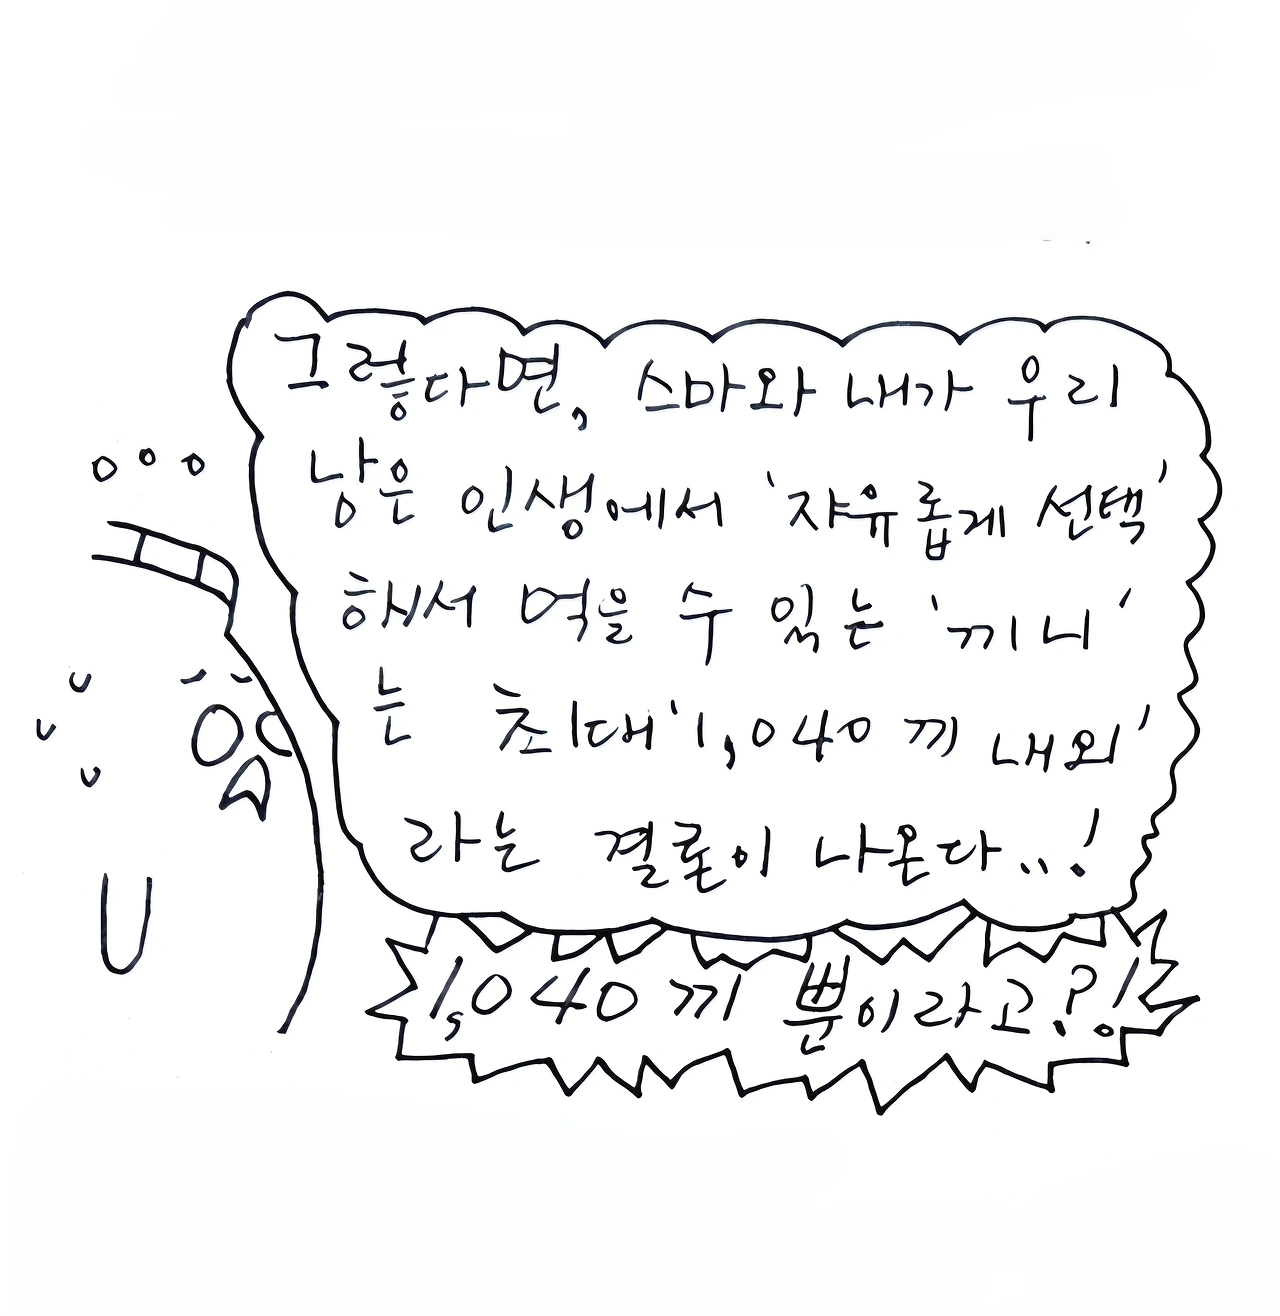 그렇다면, 스마와 내가 우리
남은 인생에서 '자유롭게 선택'
해서 먹을 수 있는 '끼니'
는 최대 '1,040끼 내외'
라는 결론이 나온다..!
1,040끼 뿐이라고?!